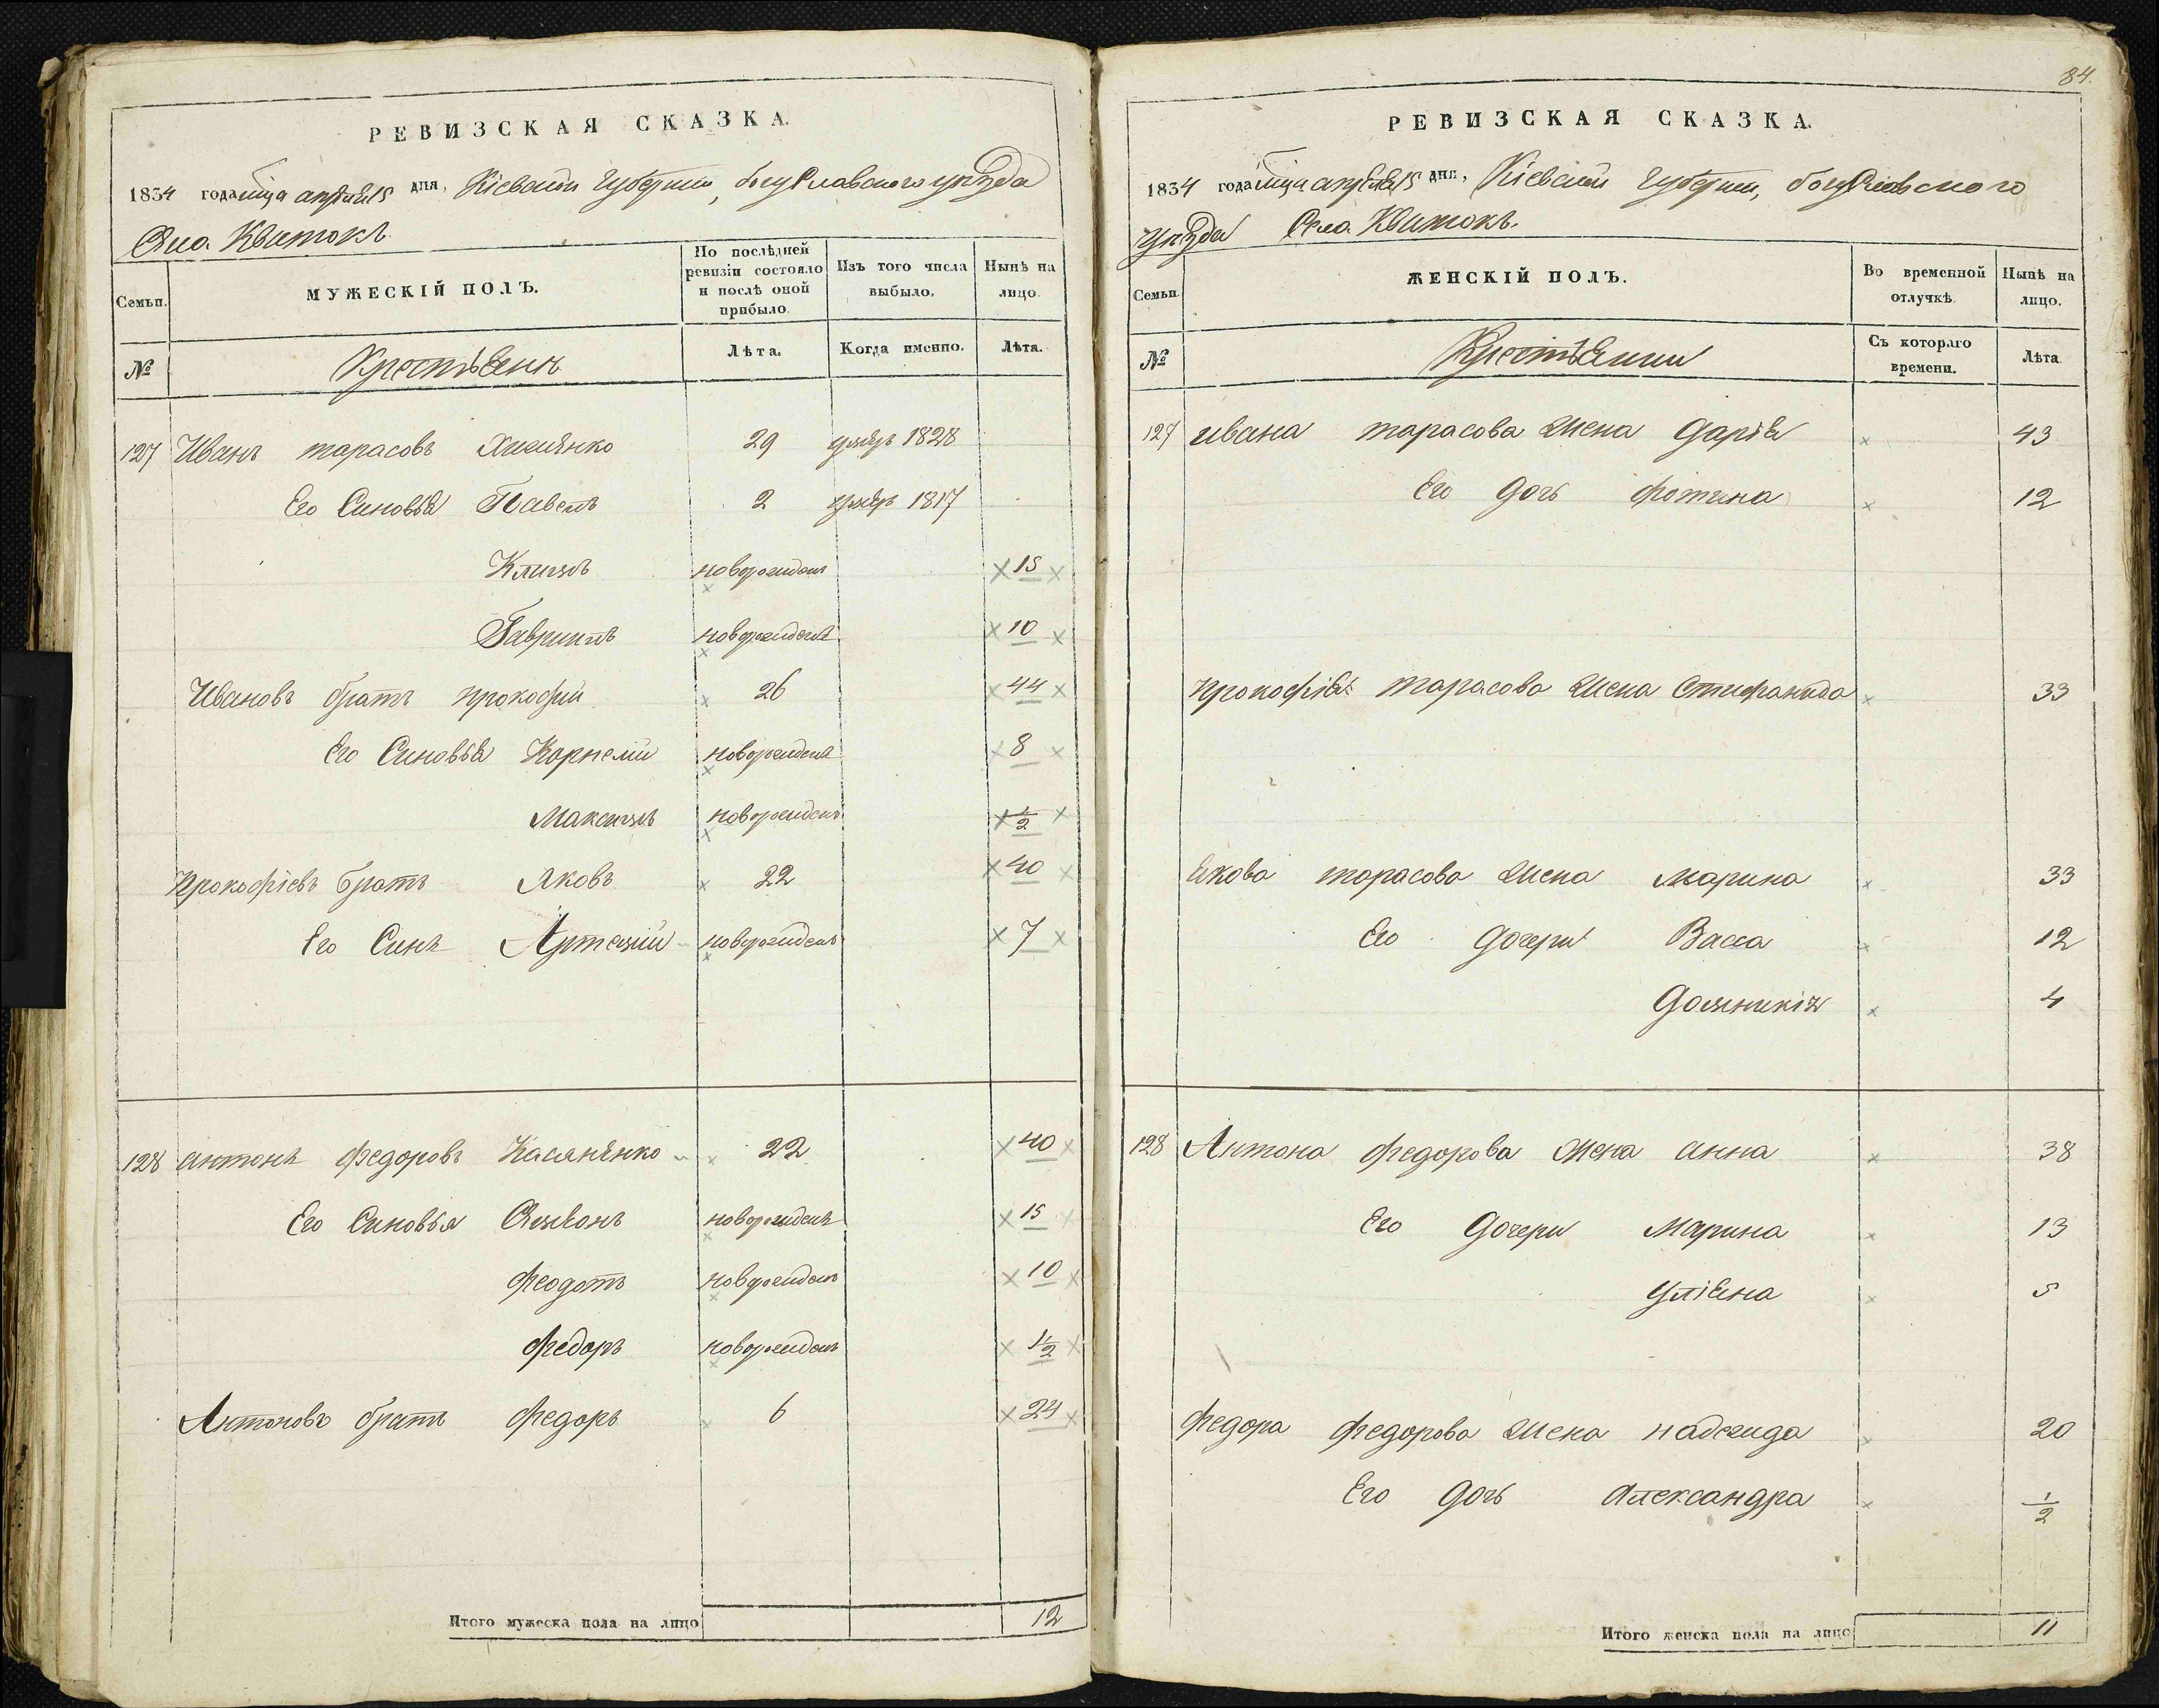 РЕВИЗСКАЯ СКАЗКА.
1834 года мца апреля 15 дня, Кіевской Губерніи, богуславского уезда
Села Квитокъ
Семьи.
МУЖЕСКІЙ ПОЛЪ.
По послѣдней ревизіи состояло и послѣ оной прибыло.
Изъ того числа выбыло.
Нынѣ на лицо.
№
Крестьяне
Лѣта.
Когда именно.
Лѣта.
127 Иванъ тарасовъ 29 1828
Его Синовья Павелъ 2 1817
Климъ новорожденъ 15
Гавриилъ новорожденъ 10
Ивановъ братъ прокофий 26 44
Его Синовья Корнелий новорожденъ 8
Максимъ новорожденъ 1/2
Прокофіевъ братъ Яковъ 22 40
Его Синъ Артемий новорожденъ 7
128 антонъ федоровъ Касяненко 22 40
Его Синовья новорожденъ 15
феодотъ новорожденъ 10
федоръ новорожденъ 1 1/2
Антоновъ братъ федоръ 6 24
Итого мужеска пола на лицо 12
84.
РЕВИЗСКАЯ СКАЗКА.
1834 года мца апреля 15 дня, Кіевской Губерніи, богуславского
уезда Села Квитокъ.
Семьи.
ЖЕНСКІЙ ПОЛЪ.
Во временной отлучкѣ.
Нынѣ на лицо.
№
Крестьянки
Съ котораго времени.
Лѣта
127 ивана тарасова жена дарія 43
Его дочь фотина 12
прокофія тарасова жена Стифанида 33
якова тарасова жена марина 33
Его дочери Васса 12
домникія 4
128 Антона федорова жена анна 38
Его дочери Марина 13
уліяна 5
федора федорова жена надежда 20
Его дочь александра 1/2
Итого женска пола на лицо 11